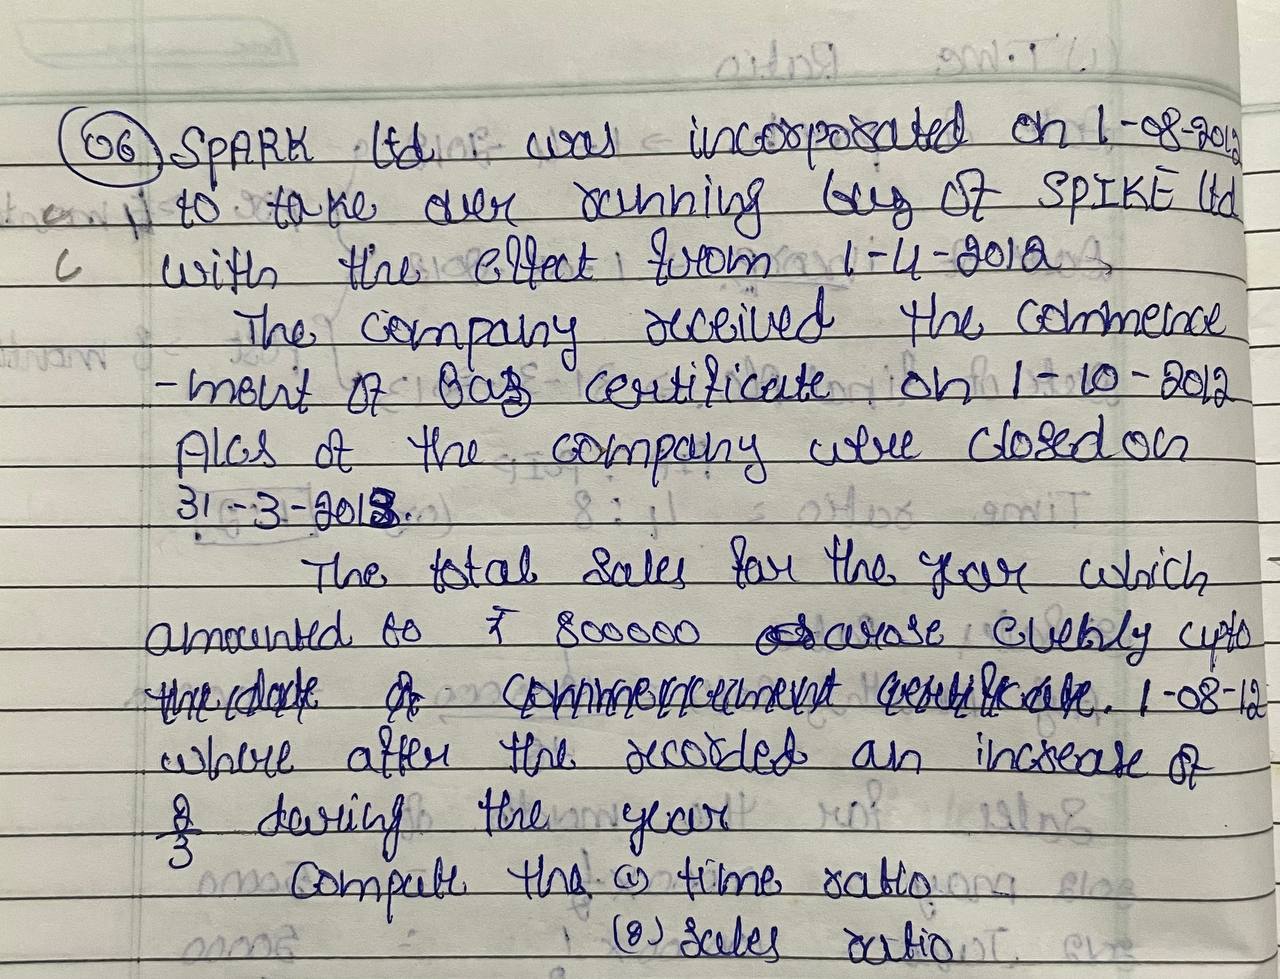 06 SPARK ltd. was incorporated on 1-08-2012
to take over running bus of SPIKE ltd
with the effect from 1-4-2012.
The company received the commence
-ment of Bus certificate on 1-10-2012
A/cs of the company were closed on
31-3-2013.
The total Sales for the year which
amounted to ₹ 800000 arose evenly upto
the date of commencement certificate. 1-08-12
where after the recorded an increase of
2/3 during the year
Compute the (1) time ratio
(2) Sales ratio